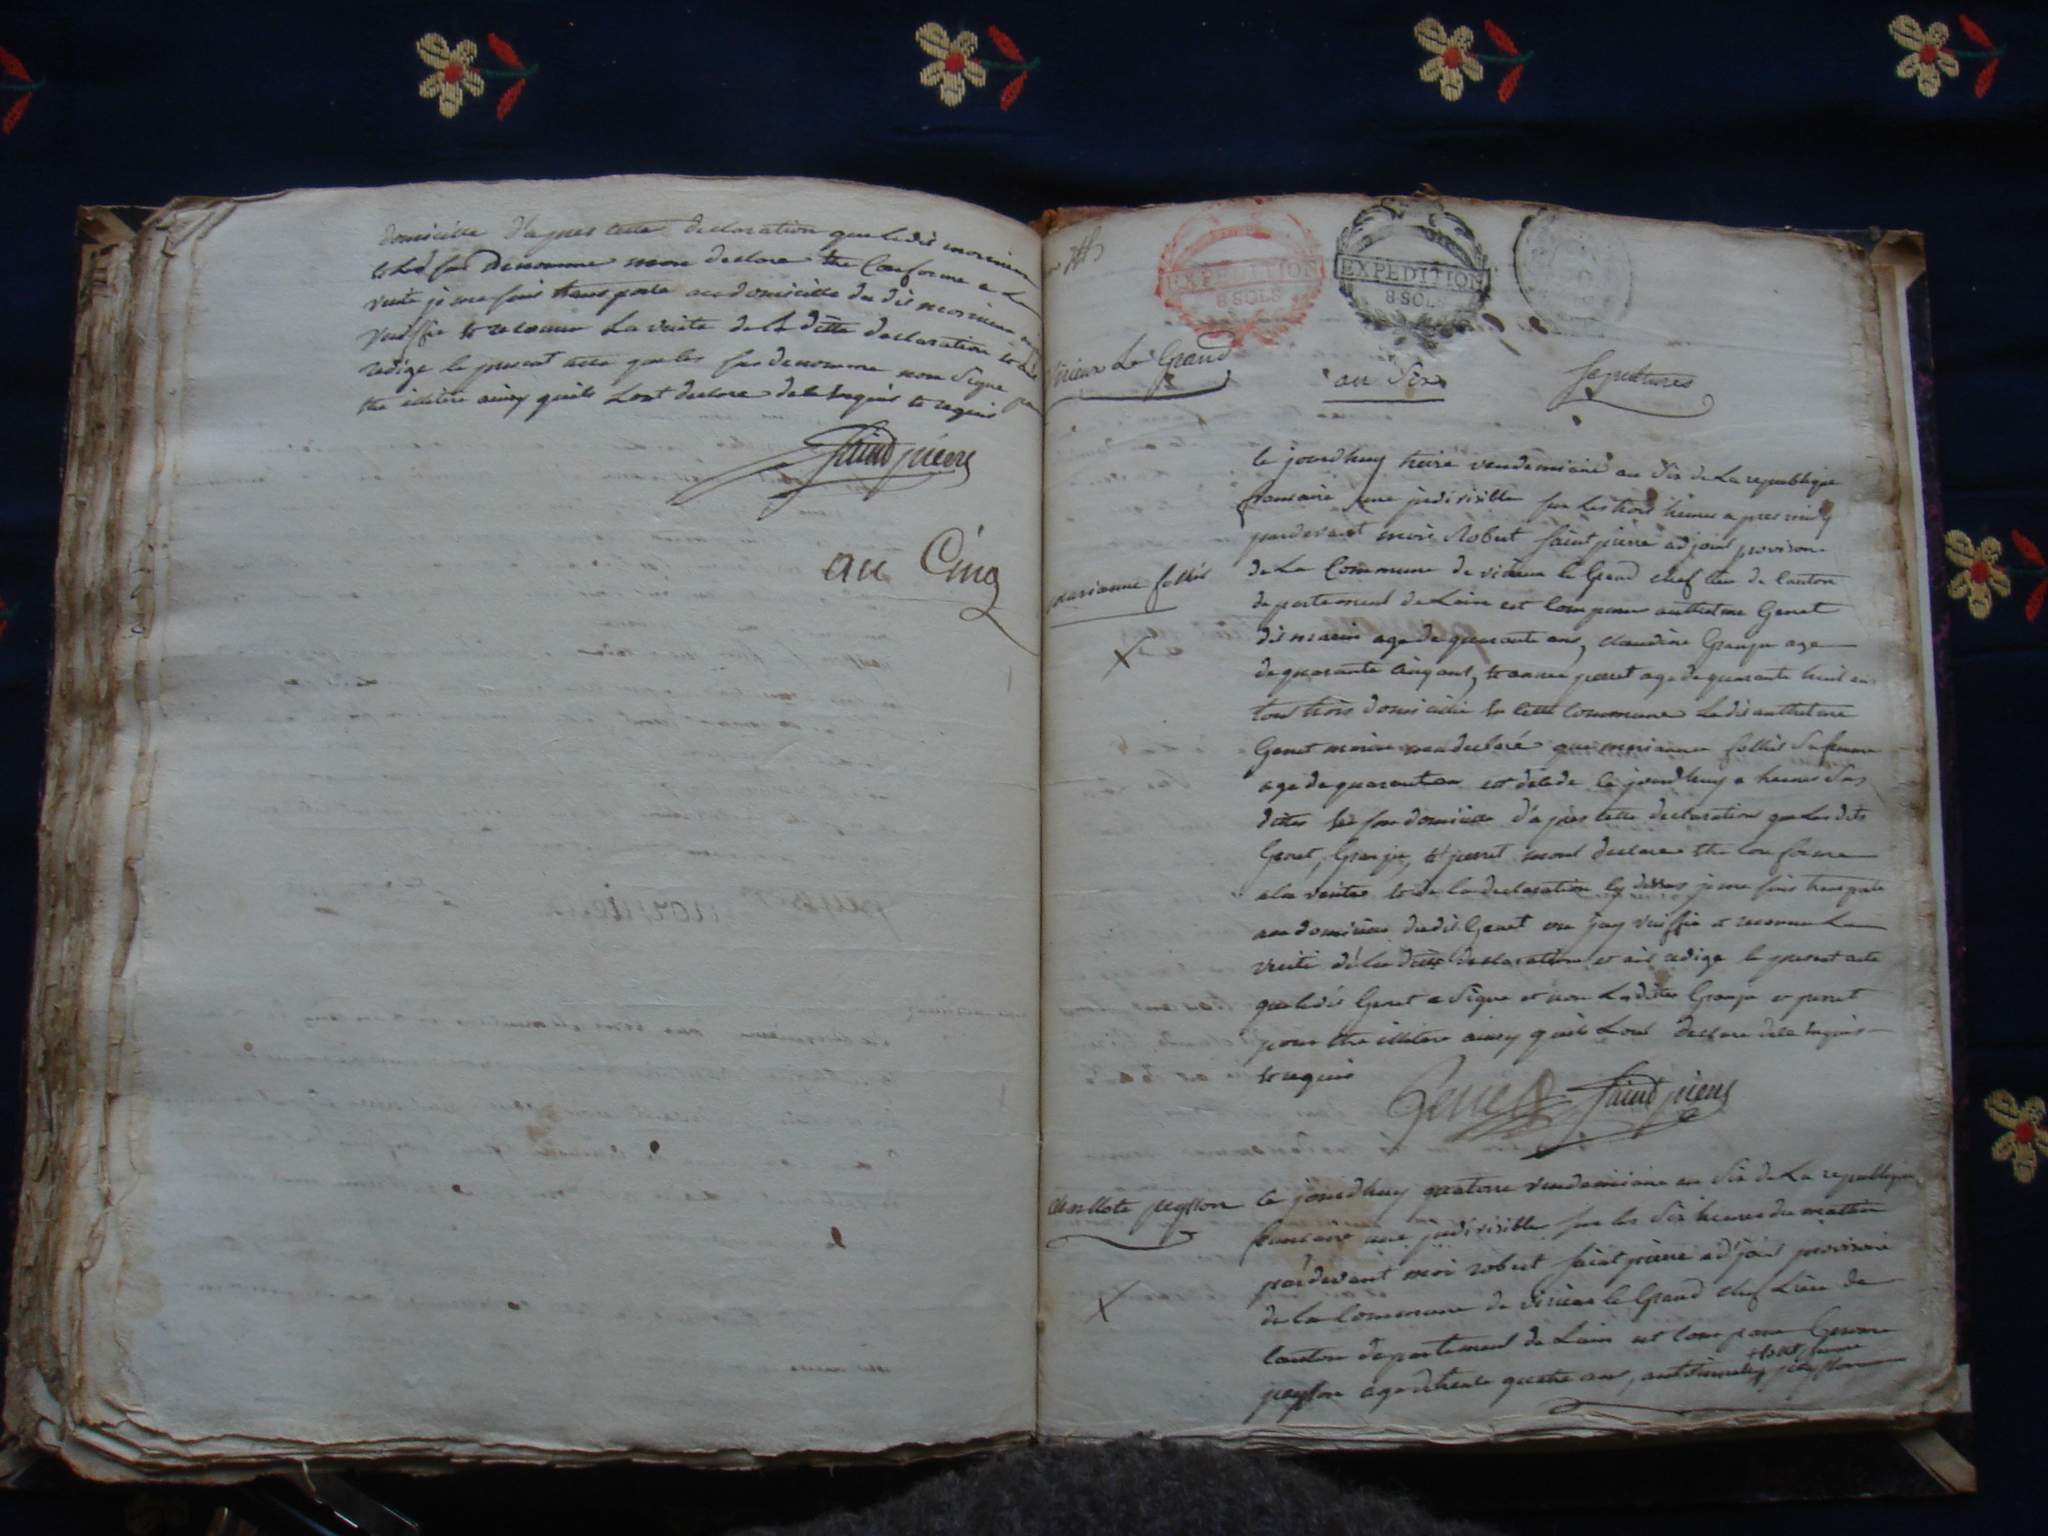 domicille d'apres cette declaration que ledit mornieu
declare être Conforme a la
verité je me suis transporte au domicille du dit mornieu
verifie et reconnu La verite de la ditte declaration et
redige le present acte que les sus denomme non Signe pour
être illitere ainsy quils Lont declare de le enquis et requis
Saint pierre
an Cinq
EXPEDITION
8 SOLS
EXPEDITION
8 SOLS
Virieux Le Grand
an Six
Sepultures
le jourdhuy treize vendemiaire an Six de La republique
francaise une indivisible sur Les trois heures apres midy
pardevant moi Robert Saint pierre adjoint
de La Commune de virieux le Grand chef lieu de Canton
departement de Lain est comparu anthelme Genet
dit marin age de quarante ans, claudine Granju age
de quarante cinq ans, et annee perret age de quarante huit ans
tous trois domicilie en cette commune Le dit anthelme
Genet ma declaré que marianne follié Sa femme
age de quarante an est décéde le jourdhuy a heures Sus
dittes en son domicille d'apres cette declaration que Les dits
Genet, Granju, et perret mont declare être conforme
a la verite et de la declaration je me suis transporte
au domicille dudit Genet ou jay verifie et reconnu La
verité dé La ditte declaration et ait redige le present acte
que ledit Genet a Signe et non Lesdites Granju et perret
pour être illitere ainsy quils Lont declare de le enquis
et requis
Genet Saint pierre
marianne follié
Charllote peysson
le jourdhuy quatorze vendemiaire an Six de La republique
francaise une indivisible sur les Six heures du mattin
pardevant moi robert Saint pierre adjoint provisoire
de la Commune de Virieux le Grand chef Lieu de
canton departement de Lain est comparu
peysson age de trente quatre ans, peysson